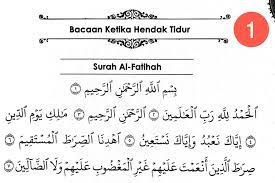 Bacaan Ketika Hendak Tidur
1
Surah Al-Fatihah
بِسْمِ اللَّهِ الرَّحْمَٰنِ الرَّحِيمِ ١
الْحَمْدُ لِلَّهِ رَبِّ الْعَالَمِينَ ٢ الرَّحْمَٰنِ الرَّحِيمِ ٣ مَالِكِ يَوْمِ الدِّينِ
٤ إِيَّاكَ نَعْبُدُ وَإِيَّاكَ نَسْتَعِينُ ٥ اهْدِنَا الصِّرَاطَ الْمُسْتَقِيمَ ٦
صِرَاطَ الَّذِينَ أَنْعَمْتَ عَلَيْهِمْ غَيْرِ الْمَغْضُوبِ عَلَيْهِمْ وَلَا الضَّالِّينَ ٧